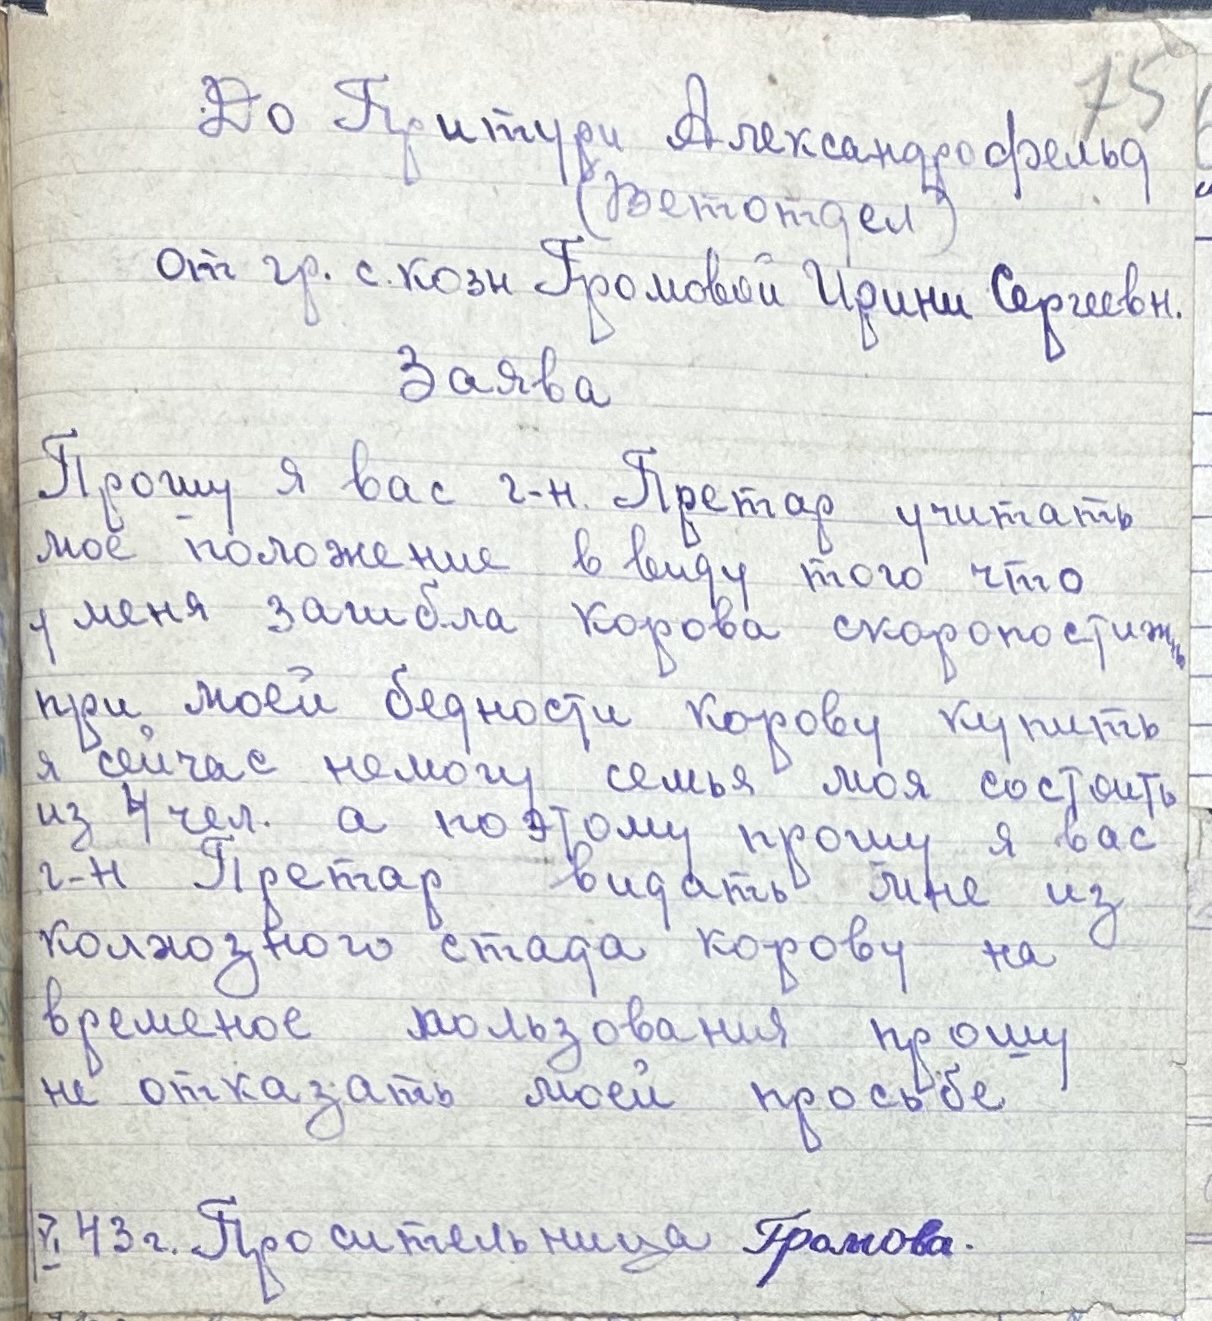 75
До Притури Александрофельд
(Ветотдел)
от гр. с. козн Громовой Ирини Сергеевн.
Заява
Прошу я вас г-н. Претар учитать
мое положение в виду того что
у меня загибла корова скоропостижн
при моей бедности корову купить
я сейчас немогу семья моя состоить
из 4 чел. а поэтому прошу я вас
г-н Претар видать мне из
колхозного стада корову на
временое пользования прошу
не отказать моей просьбе
43 г. Просительница Громова.